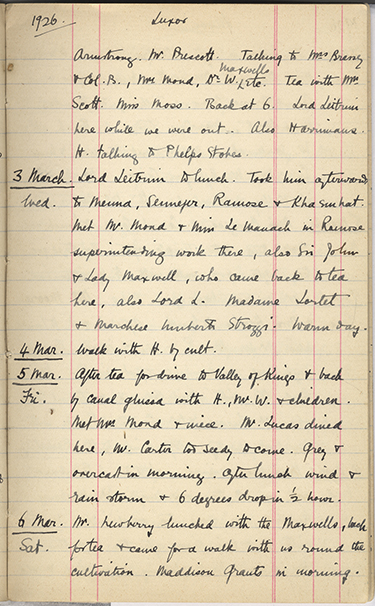 1926. Luxor
Armstrong, Mr. Prescott. Talking to Mrs Brassy
Maxwells
& Col. B., Mrs Mond, Dr. W. Tea with Mr
Scott. Miss Moss. Back at 6. Lord Leitrim
here while we were out. Also Harrimans.
H. talking to Phelps Stokes.
3 March. Lord Leitrim to lunch. Took him afterwards
Wed. to Menna, Sennefer, Ramose & Khaemhat
Met Mr. Mond & Miss Le Manach in Ramose
superintending work there, also Sir John
& Lady Maxwell, who came back to tea
here, also Lord L. Madame Lortet
& Marchese Umberto Strozzi. Warm day.
4 Mar. Walk with H. by cult.
5 Mar. After tea for drive to Valley of Kings & back
Fri. by canal with H., Mr. W. & children.
Met Mrs Mond & niece. Mr. Lucas dined
here, Mr. Carter too seedy to come. Grey &
overcast in morning. After lunch wind &
rain storm & 6 degrees drop in ½ hour.
6 Mar. Mr. Newberry lunched with the Maxwells, back
Sat. for tea & came for a walk with us round the
cultivation. Maddison Grants in morning.